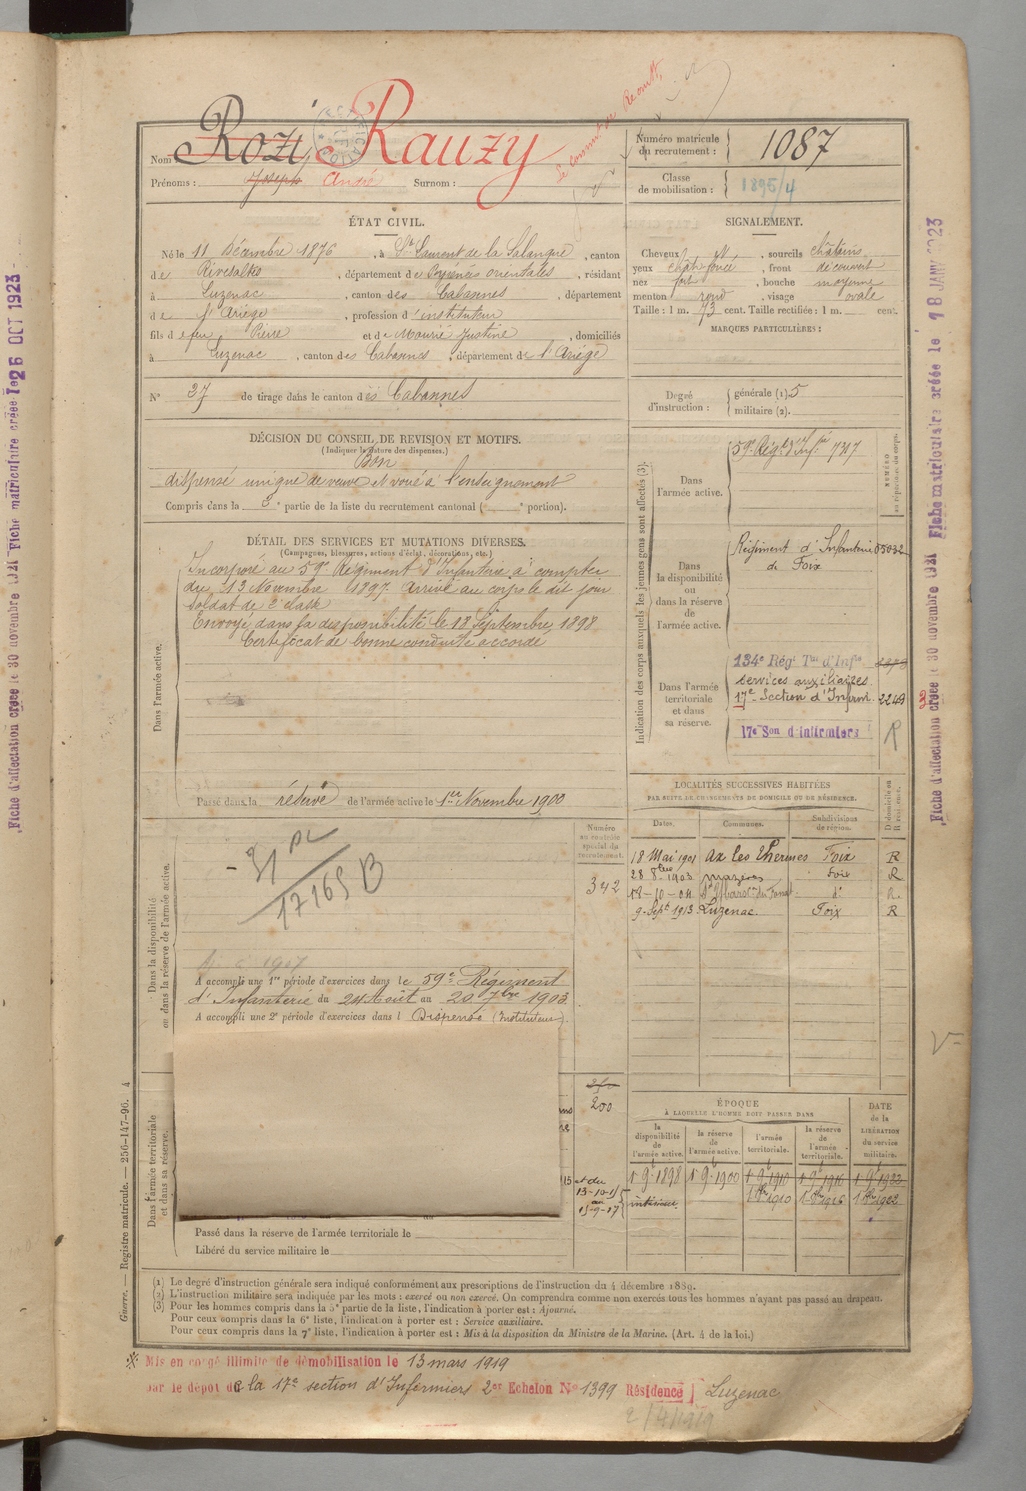 Nom Rozi Rauzy
Prénoms : Joseph André Surnom :
Numéro matricule du recrutement : 1087
Classe de mobilisation : 1895/4
ÉTAT CIVIL.
Né le 11 Décembre 1876, à St Laurent de la Salanque, canton
de Rivesaltes, département des Pyrénées orientales, résidant
à Luzenac, canton des Cabannes, département
de l'Ariège, profession d'instituteur
fils de feu Pierre et de Maurié Justine, domiciliés
à Luzenac, canton des Cabannes, département de l'Ariège
N° 27 de tirage dans le canton des Cabannes
SIGNALEMENT.
Cheveux, sourcils châtains
yeux chât. foncé, front découvert
nez fort, bouche moyenne
menton rond, visage ovale
Taille : 1 m. 73 cent. Taille rectifiée : 1 m. cent.
MARQUES PARTICULIÈRES :
Degré d'instruction : générale (1). 5
militaire (2).
DÉCISION DU CONSEIL DE REVISION ET MOTIFS.
(Indiquer la nature des dispenses.)
Bon
dispensé unique de veuve et voué à l'enseignement
Compris dans la 2e partie de la liste du recrutement cantonal ( e portion).
DÉTAIL DES SERVICES ET MUTATIONS DIVERSES.
(Campagnes, blessures, actions d'éclat, décorations, etc.)
Dans l'armée active.
Incorporé au 59e Régiment d'Infanterie à compter
du 13 Novembre 1897. Arrivé au corps le dit jour
soldat de 2e classe
Envoyé dans la disponibilité le 18 Septembre 1898
Certificat de bonne conduite accordé
Passé dans la réserve de l'armée active le 1er Novembre 1900
Indication des corps auxquels les jeunes gens sont affectés (3).
Dans l'armée active.
59e Régt d'Infie 7317
Dans la disponibilité ou dans la réserve de l'armée active.
Régiment d'Infanterie 05032
de Foix
Dans l'armée territoriale et dans sa réserve.
134e Régt Tal d'Infie
services auxiliaires
17e Section d'Infirm. 2249
17e Son d'infirmiers R
LOCALITÉS SUCCESSIVES HABITÉES
PAR SUITE DE CHANGEMENTS DE DOMICILE OU DE RÉSIDENCE.
Dates. Communes. Subdivisions de région. D domicile ou R résidence.
18 Mai 1901 Ax les Thermes Foix R
28 8bre 1903 Mazères Foix R
18-10-04 d° R.
9 Sept 1913 Luzenac. Foix R
Dans la disponibilité ou dans la réserve de l'armée active.
Numéro au contrôle spécial du recrutement.
342
17165 B
A accompli une 1re période d'exercices dans le 59e Régiment
d'Infanterie du 24 Août au 20 7bre 1903
A accompli une 2e période d'exercices dans l Dispensé (Instituteur).
Dans l'armée territoriale et dans sa réserve.
200
et du
13-10-15
au
15-9-17
Passé dans la réserve de l'armée territoriale le
Libéré du service militaire le
ÉPOQUE
À LAQUELLE L'HOMME DOIT PASSER DANS
la disponibilité de l'armée active. la réserve de l'armée active. l'armée territoriale. la réserve de l'armée territoriale.
DATE de la LIBÉRATION du service militaire.
1 9bre 1898 1 9bre 1900 1 9bre 1910 1 9bre 1916 1 9bre 1922
(1) Le degré d'instruction générale sera indiqué conformément aux prescriptions de l'instruction du 4 décembre 1889.
(2) L'instruction militaire sera indiquée par les mots : exercé ou non exercé. On comprendra comme non exercés tous les hommes n'ayant pas passé au drapeau.
(3) Pour les hommes compris dans la 5e partie de la liste, l'indication à porter est : Ajourné.
Pour ceux compris dans la 6e liste, l'indication à porter est : Service auxiliaire.
Pour ceux compris dans la 7e liste, l'indication à porter est : Mis à la disposition du Ministre de la Marine. (Art. 4 de la loi.)
Mis en congé illimité de démobilisation le 13 mars 1919
par le dépôt de la 17e section d'Infirmiers 2er Echelon N° 1399 Résidence Luzenac
Guerre. — Registre matricule. — 256-147-96. 4
Fiche d'affectation créée le 30 novembre 1921 Fiche matriculaire créée le 26 OCT 1923
Fiche d'affectation créée le 30 novembre 1921 Fiche matriculaire créée le 18 JANV 1923